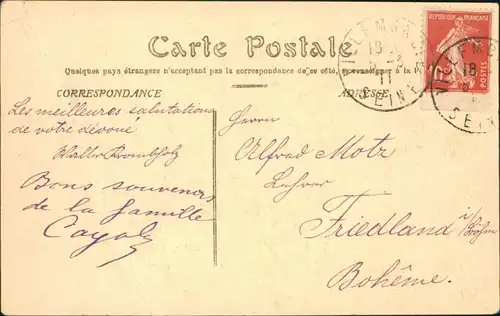 Carte Postale
Quelques pays étrangers n'acceptant pas la correspondance de ce côté, se renseigner à la
CORRESPONDANCE
ADRESSE
Les meilleures salutations
de votre dévoué
Walter Krombholz
Bons souvenirs
de la famille
Cayol
Herrn
Alfred Motz
Lehrer
Friedland i/Böhm
Bohême.
18
11
SEINE
REPUBLIQUE FRANÇAISE
18
SEINE